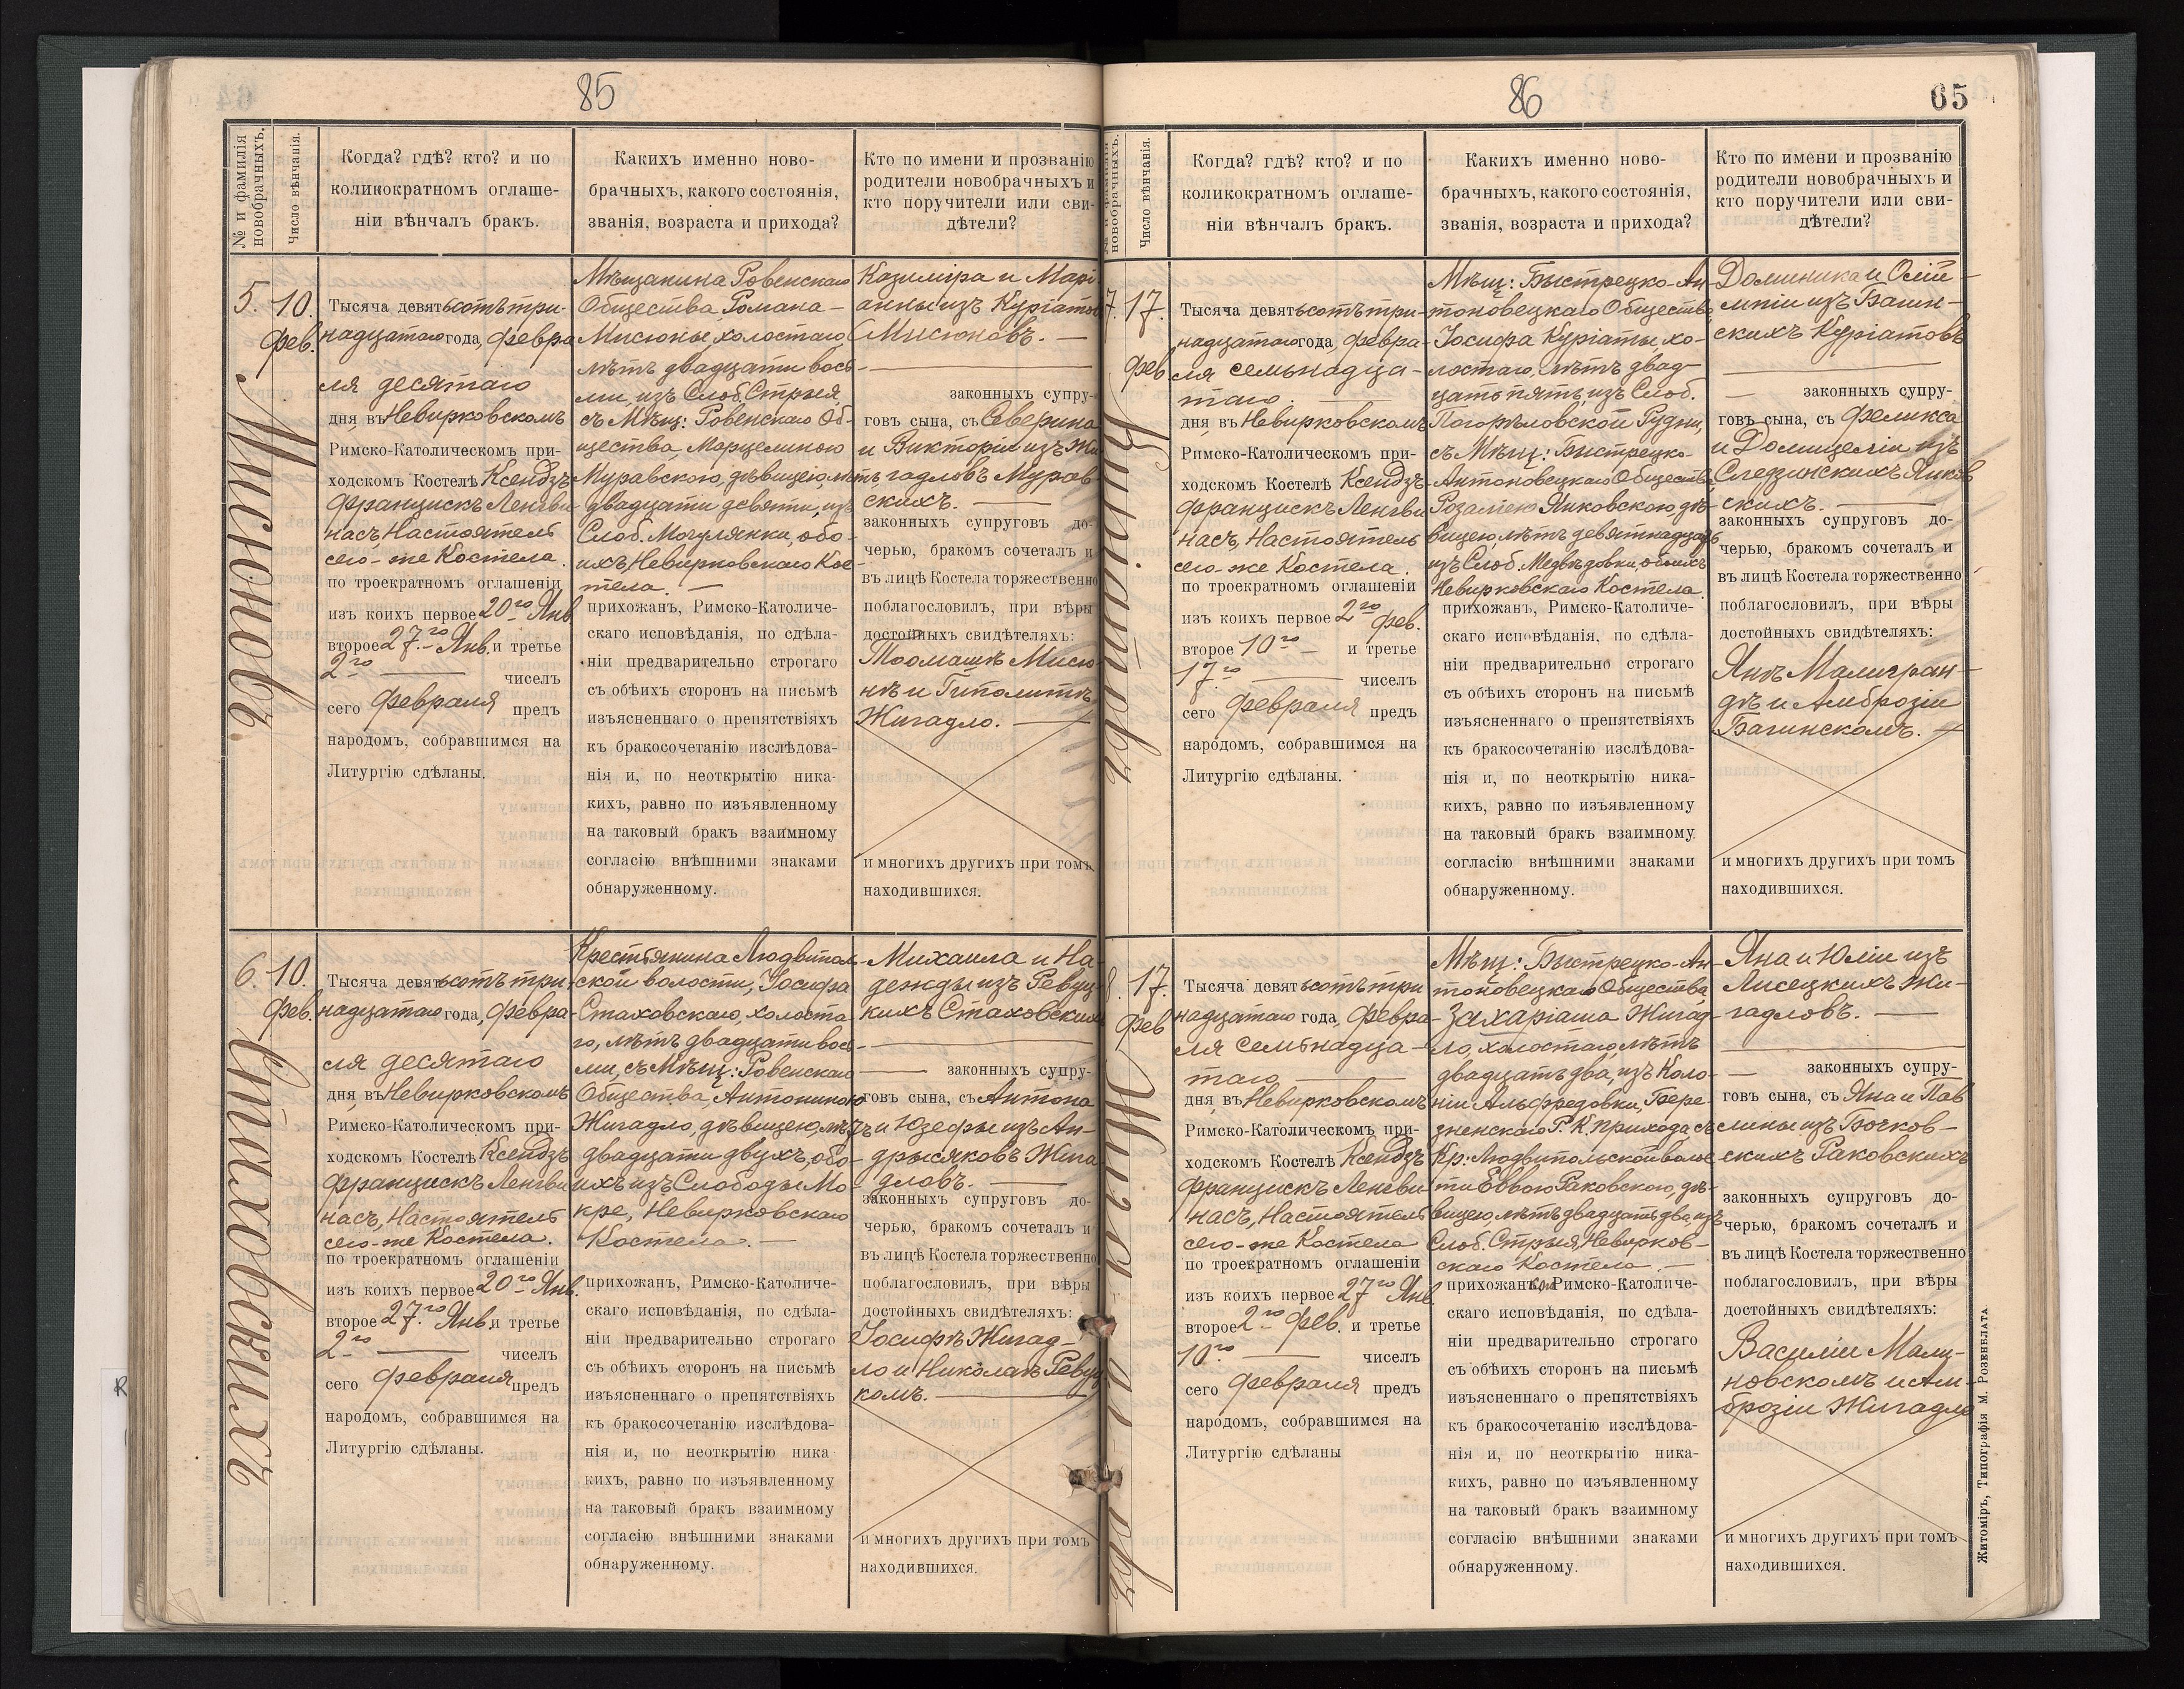 85
№ и фамилія новобрачныхъ.
Число вѣнчанія.
Когда? гдѣ? кто? и по
коликократномъ оглаше-
ніи вѣнчалъ бракъ.
Какихъ именно ново-
брачныхъ, какого состоянія,
званія, возраста и прихода?
Кто по имени и прозванію
родители новобрачныхъ и
кто поручители или сви-
дѣтели?
5.
Мисюновъ.
10.
Фев.
Тысяча девятьсотъ три-
надцатаго года, Февра-
ля десятаго
дня, въ Невирковскомъ
Римско-Католическомъ при-
ходскомъ Костелѣ Ксендзъ
Францискъ Ленгви-
насъ, Настоятель
сего-же Костела.
по троекратномъ оглашеніи
изъ коихъ первое 20го Янв.
второе 27.го Янв. и третье
2го чиселъ
сего Февраля предъ
народомъ, собравшимся на
Литургію сдѣланы.
Мѣщанина Ровенскаго
Общества, Романа
Мисюны, холостаго,
лѣтъ двадцати вось-
ми, изъ Слоб. Стрыя,
съ Мѣщ: Ровенскаго Об-
щества, Марцелиною
Муравскою, дѣвицею, лѣтъ
двадцати девяти, изъ
Слоб. Могулянки, обо-
ихъ Невирковскаго Кос-
тела.
прихожанъ, Римско-Католиче-
скаго исповѣданія, по сдѣла-
ніи предварительно строгаго
съ обѣихъ сторонъ на письмѣ
изъясненнаго о препятствіяхъ
къ бракосочетанію изслѣдова-
нія и, по неоткрытію ника-
кихъ, равно по изъявленному
на таковый бракъ взаимному
согласію внѣшними знаками
обнаруженному.
Казимира и Марі-
анны изъ Куріатов
Мисюновъ.
законныхъ супру-
говъ сына, съ Северина
и Викторіи изъ Жи-
гадловъ Мурав-
скихъ.
законныхъ супруговъ до-
черью, бракомъ сочеталъ и
въ лицѣ Костела торжественно
поблагословилъ, при вѣры
достойныхъ свидѣтеляхъ:
Томашѣ Мисю-
нѣ и Гиполитѣ
Жигадло.
и многихъ другихъ при томъ
находившихся.
6.
Стаховскихъ
10.
Фев.
Тысяча девятьсотъ три-
надцатаго года, Февра-
ля десятаго
дня, въ Невирковскомъ
Римско-Католическомъ при-
ходскомъ Костелѣ Ксендзъ
Францискъ Ленгви-
насъ, Настоятель
сего-же Костела.
по троекратномъ оглашеніи
изъ коихъ первое 20го Янв.
второе 27.го Янв. и третье
2го чиселъ
сего Февраля предъ
народомъ, собравшимся на
Литургію сдѣланы.
Крестьянина Людвиполь-
ской волости, Іосифа
Стаховскаго, холоста-
го, лѣтъ двадцати вось-
ми, съ Мѣщ: Ровенскаго
Общества, Антониною
Жигадло, дѣвицею, лѣтъ
двадцати двухъ, обо-
ихъ изъ Слободы Мо-
кре, Невирковскаго
Костела.
прихожанъ, Римско-Католиче-
скаго исповѣданія, по сдѣла-
ніи предварительно строгаго
съ обѣихъ сторонъ на письмѣ
изъясненнаго о препятствіяхъ
къ бракосочетанію изслѣдова-
нія и, по неоткрытію ника
кихъ, равно по изъявленному
на таковый бракъ взаимному
согласію внѣшними знаками
обнаруженному.
Михаила и На-
дежды изъ Ревуц-
кихъ Стаховскихъ
законныхъ супру-
говъ сына, съ Антона
и Юзефы изъ Ан-
дрысяковъ Жига-
дловъ.
законныхъ супруговъ до-
черью, бракомъ сочеталъ и
въ лицѣ Костела торжественно
поблагословилъ, при вѣры
достойныхъ свидѣтеляхъ:
Іосифѣ Жигад-
ло и Николаѣ Ревуц
комъ.
и многихъ другихъ при томъ
находившихся.
86
65
новобрачныхъ.
Число вѣнчанія.
Когда? гдѣ? кто? и по
коликократномъ оглаше-
ніи вѣнчалъ бракъ.
Какихъ именно ново-
брачныхъ, какого состоянія,
званія, возраста и прихода?
Кто по имени и прозванію
родители новобрачныхъ и
кто поручители или сви-
дѣтели?
7.
17.
Фев
Тысяча девятьсотъ три-
надцатаго года, Февра-
ля семьнадца-
таго.
дня, въ Невирковскомъ
Римско-Католическомъ при-
ходскомъ Костелѣ Ксендзъ
Францискъ Ленгви-
насъ, Настоятель
сего-же Костела.
по троекратномъ оглашеніи
изъ коихъ первое 2го Фев.
второе 10го и третье
17.го чиселъ
сего Февраля предъ
народомъ, собравшимся на
Литургію сдѣланы.
Мѣщ: Быстрецко-Ан-
тоновецкаго Общества,
Іосифа Куріаты, хо-
лостаго, лѣтъ двад-
цать пять, изъ Слоб.
Погорѣловской Рудни,
съ Мѣщ: Быстрецко-
Антоновецкаго Общества,
Розаліею Янковскою, дѣ-
вицею, лѣтъ девятнадцать
изъ Слоб. Медвѣдовки, обоихъ
Невирковскаго Костела.
прихожанъ, Римско-Католиче-
скаго исповѣданія, по сдѣла-
ніи предварительно строгаго
съ обѣихъ сторонъ на письмѣ
изъясненнаго о препятствіяхъ
къ бракосочетанію изслѣдова-
нія и, по неоткрытію ника-
кихъ, равно по изъявленному
на таковый бракъ взаимному
согласію внѣшними знаками
обнаруженному.
Доминика и Олим-
піи изъ Багин-
скихъ Куріатовъ
законныхъ супру-
говъ сына, съ Феликса
и Домицеліи изъ
Следзинскихъ Янков
скихъ.
законныхъ супруговъ до-
черью, бракомъ сочеталъ и
въ лицѣ Костела торжественно
поблагословилъ, при вѣры
достойныхъ свидѣтеляхъ:
Янѣ Малигран-
дѣ и Амброзіи
Багинскомъ.
и многихъ другихъ при томъ
находившихся.
8.
17.
Фев
Тысяча девятьсотъ три
надцатаго года, Февра-
ля семьнадца-
таго
дня, въ Невирковскомъ
Римско-Католическомъ при-
ходскомъ Костелѣ Ксендзъ
Францискъ Ленгви-
насъ, Настоятель
сего-же Костела
по троекратномъ оглашеніи
изъ коихъ первое 27го Янв.
второе 2го Фев. и третье
10.го чиселъ
сего Февраля предъ
народомъ, собравшимся на
Литургію сдѣланы
Мѣщ: Быстрецко-Ан-
тоновецкаго Общества,
Захаріаша Жигад-
ло, холостаго, лѣтъ
двадцать два, изъ Коло-
ніи Альфредовки, Бере-
зненскаго Р. К. прихода, съ
Кр: Людвипольской волос
ти Еввою Раковскою, дѣ-
вицею, лѣтъ двадцать два, изъ
Слоб. Стрыя, Невирков-
скаго Костела.
прихожанъ, Римско-Католиче-
скаго исповѣданія, по сдѣла-
ніи предварительно строгаго
съ обѣихъ сторонъ на письмѣ
изъясненнаго о препятствіяхъ
къ бракосочетанію изслѣдова-
нія и, по неоткрытію ника-
кихъ, равно по изъявленному
на таковый бракъ взаимному
согласію внѣшними знаками
обнаруженному.
Яна и Юліи изъ
Лисецкихъ Жи-
гадловъ.
законныхъ супру-
говъ сына, съ Яна и Пав
лины изъ Бочков-
скихъ Раковскихъ
законныхъ супруговъ до-
черью, бракомъ сочеталъ и
въ лицѣ Костела торжественно
поблагословилъ, при вѣры
достойныхъ свидѣтеляхъ:
Василіи Мали-
новскомъ и Ам-
брозіи Жигадло
и многихъ другихъ при томъ
находившихся.
Житоміръ, Типографія М. Розенблата